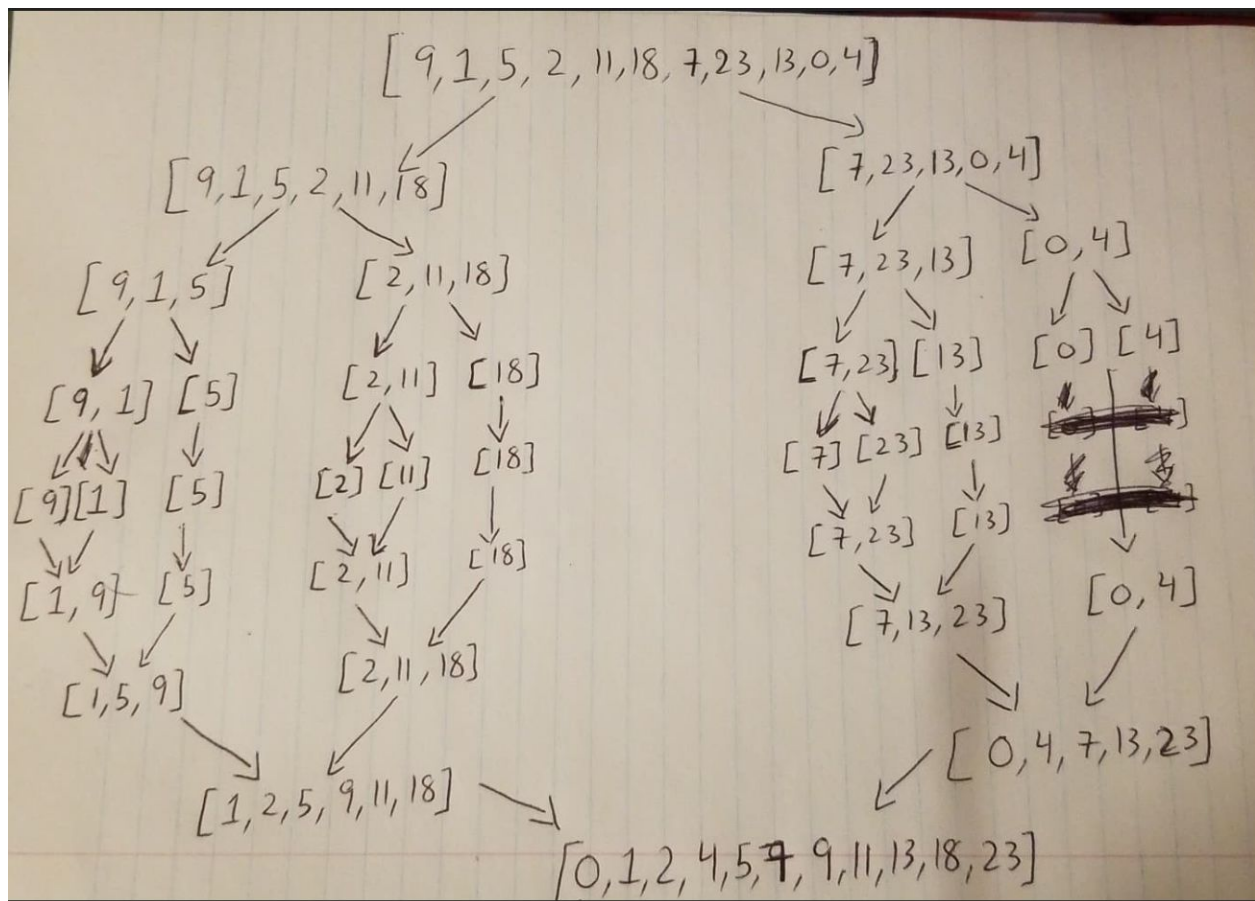 [9,1,5,2,11,18,7,23,13,0,4]
[9,1,5,2,11,18]
[7,23,13,0,4]
[9,1,5]
[2,11,18]
[7,23,13]
[0,4]
[9,1] [5]
[2,11] [18]
[7,23] [13]
[0] [4]
[9][1] [5]
[2] [11] [18]
[7] [23] [13]
[1,9] [5]
[2,11] [18]
[7,23] [13]
[0,4]
[1,5,9]
[2,11,18]
[7,13,23]
[0,4,7,13,23]
[1,2,5,9,11,18]
[0,1,2,4,5,7,9,11,13,18,23]